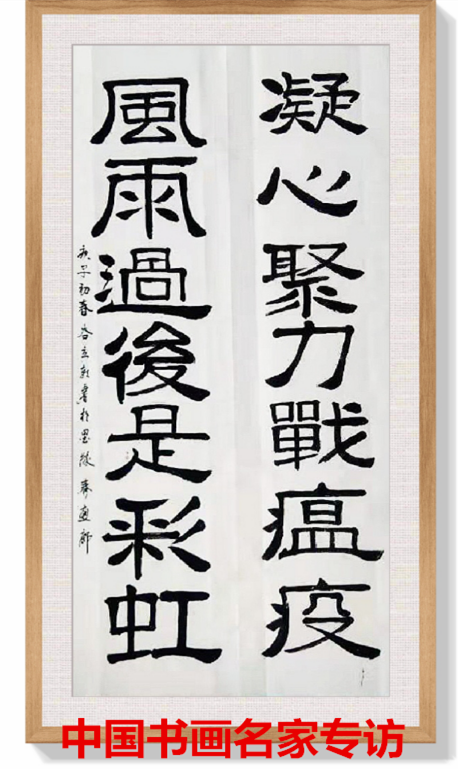 凝心聚力戰瘟疫
風雨過後是彩虹
庚子初春谷立新書於墨緣齋
中国书画名家专访